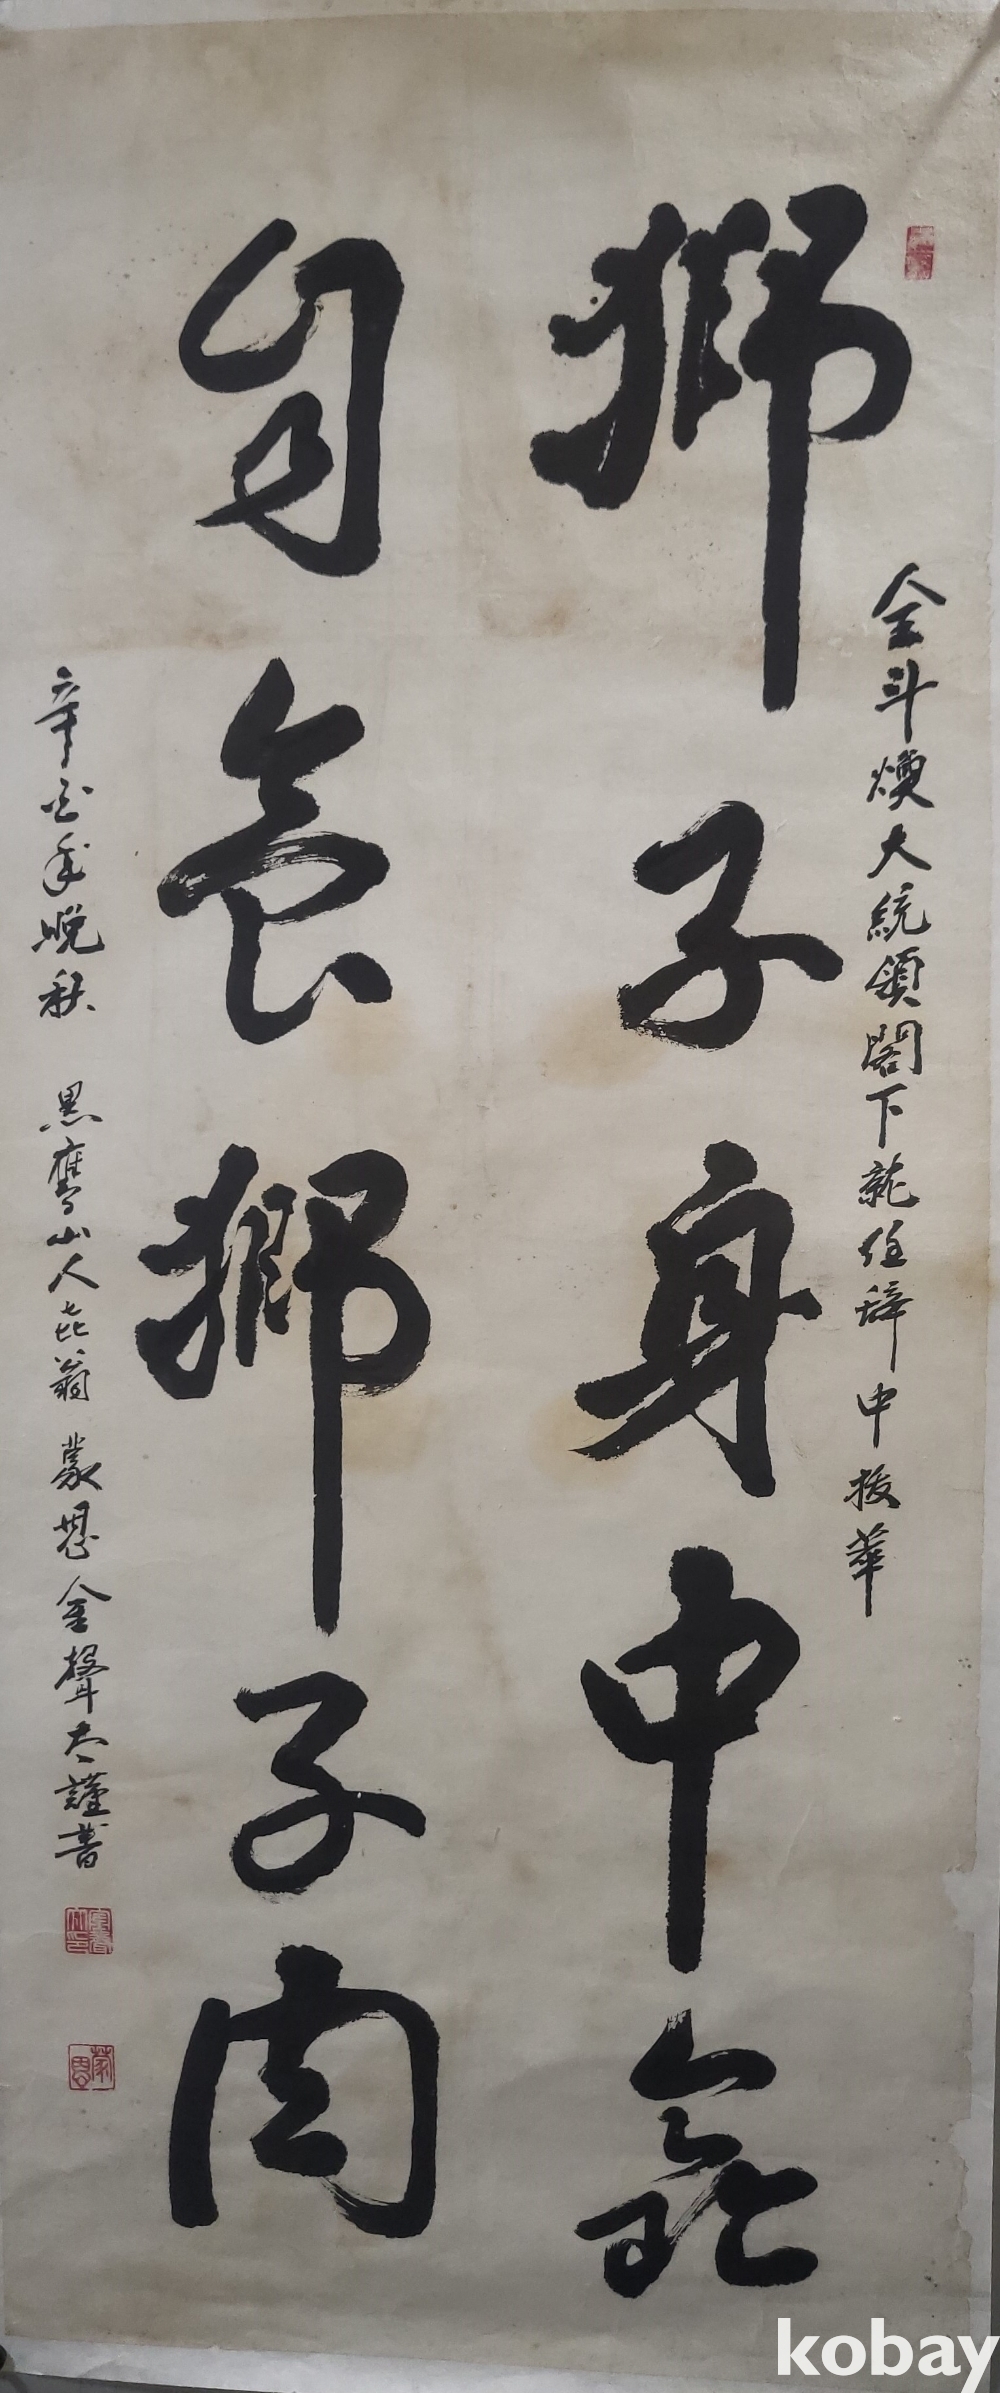 全斗煥大統領閣下就任辞中拔萃
獅子身中虫
自食獅子肉
辛酉年晩秋 黒鷹山人七翁 蒙恩 金聲大謹書
kobay